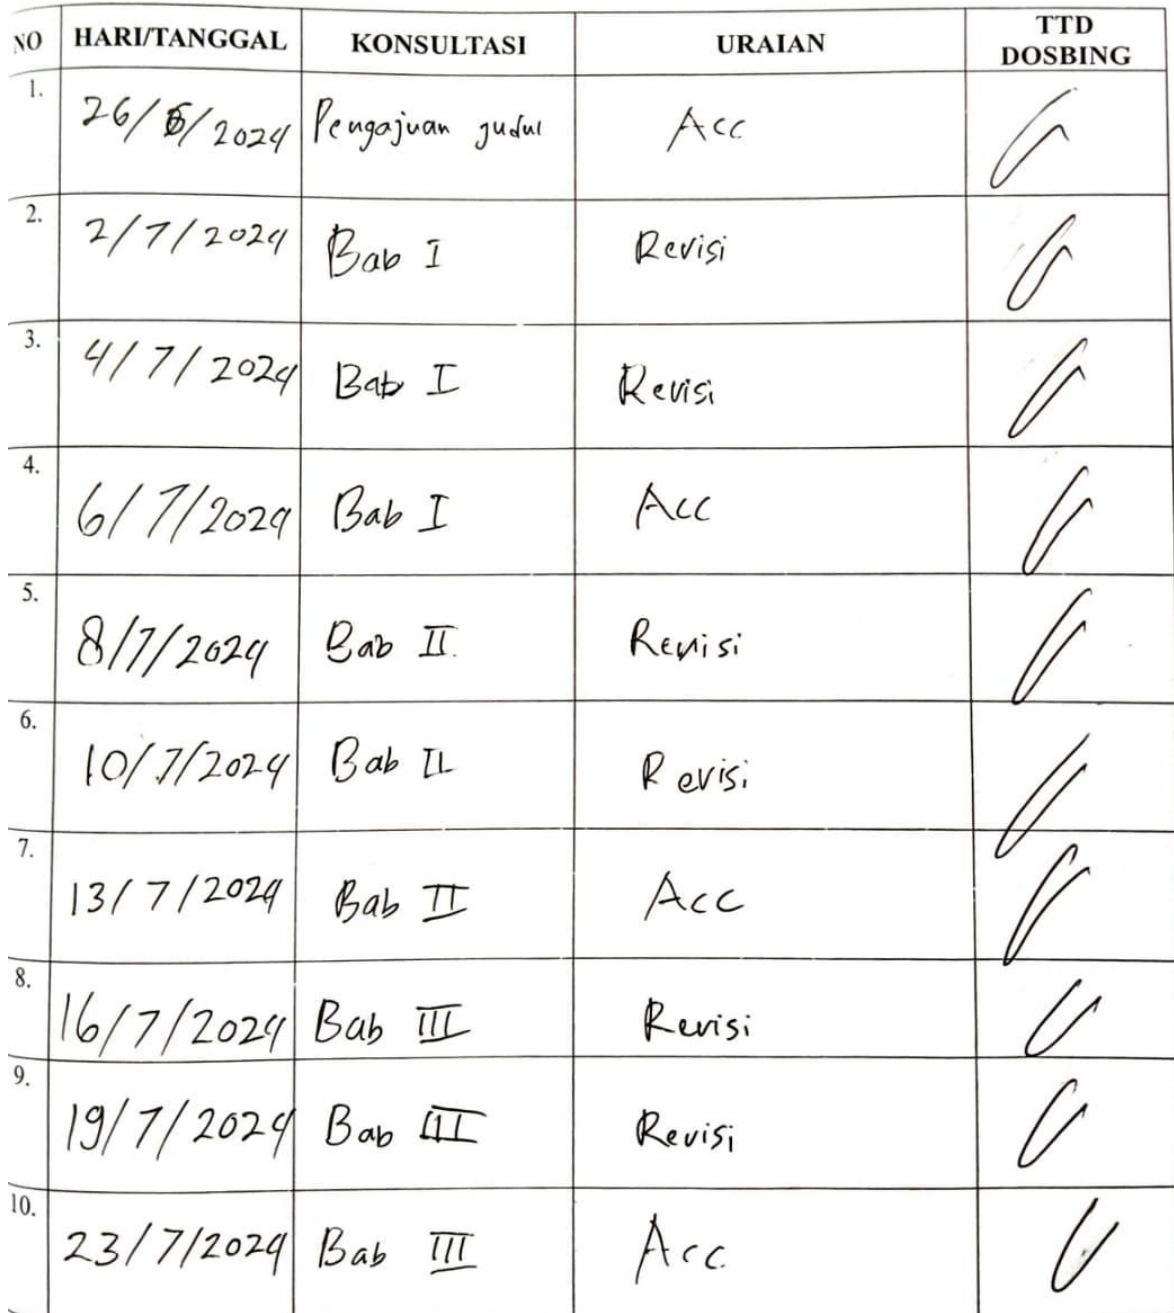 NO HARI/TANGGAL KONSULTASI URAIAN TTD DOSBING
1. 26/6/2024 Pengajuan judul Acc
2. 2/7/2024 Bab I Revisi
3. 4/7/2024 Bab I Revisi
4. 6/7/2024 Bab I Acc
5. 8/7/2024 Bab II Revisi
6. 10/7/2024 Bab II Revisi
7. 13/7/2024 Bab II Acc
8. 16/7/2024 Bab III Revisi
9. 19/7/2024 Bab III Revisi
10. 23/7/2024 Bab III Acc